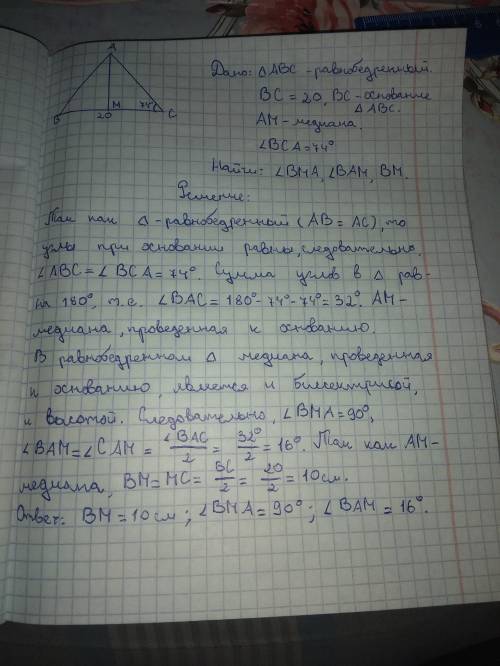 A
B
20
M
74°
C
Дано: △ABC - равнобедренный.
BC = 20, BC - основание
△ABC.
AM - медиана.
∠BCA = 74°
Найти: ∠BMA, ∠BAM, BM.
Решение:
Так как △ - равнобедренный (AB = AC), то
углы при основании равны, следовательно.
∠ABC = ∠BCA = 74°. Сумма углов в △ рав-
на 180°, т.е. ∠BAC = 180° - 74° - 74° = 32°. AM -
медиана, проведенная к основанию.
В равнобедренном △ медиана, проведенная
к основанию, является и биссектрисой,
и высотой. Следовательно, ∠BMA = 90°,
∠BAM = ∠CAM = ∠BAC/2 = 32°/2 = 16°. Так как AM -
медиана, BM = MC = BC/2 = 20/2 = 10 см.
Ответ: BM = 10 см; ∠BMA = 90°; ∠BAM = 16°.